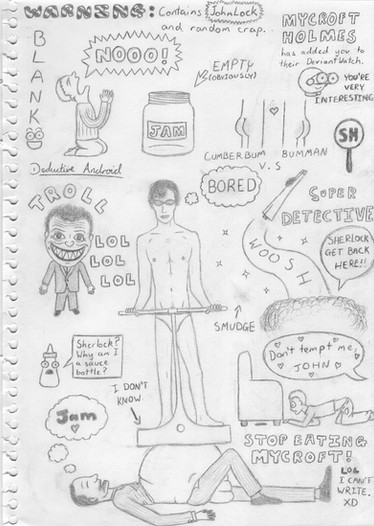 WARNING: Contains JohnLock
and random crap...
MYCROFT
HOLMES
has added you to
their DeviantWatch.
BLANK
NOOO!
EMPTY
(OBVIOUSLY)
JAM
YOU'RE
VERY
INTERESTING
SH
CUMBERBUM V.S BUMMAN
Deductive Android
TROLL
LOL
LOL
LOL
BORED
SUPER
DETECTIVE
WOOSH
SHERLOCK
GET BACK
HERE!!
SMUDGE
Sherlock?
Why am I
a sauce
bottle?
I DON'T
KNOW.
Don't tempt me,
JOHN
Jam
STOP EATING
MYCROFT!
LOL
I CAN'T
WRITE.
XD